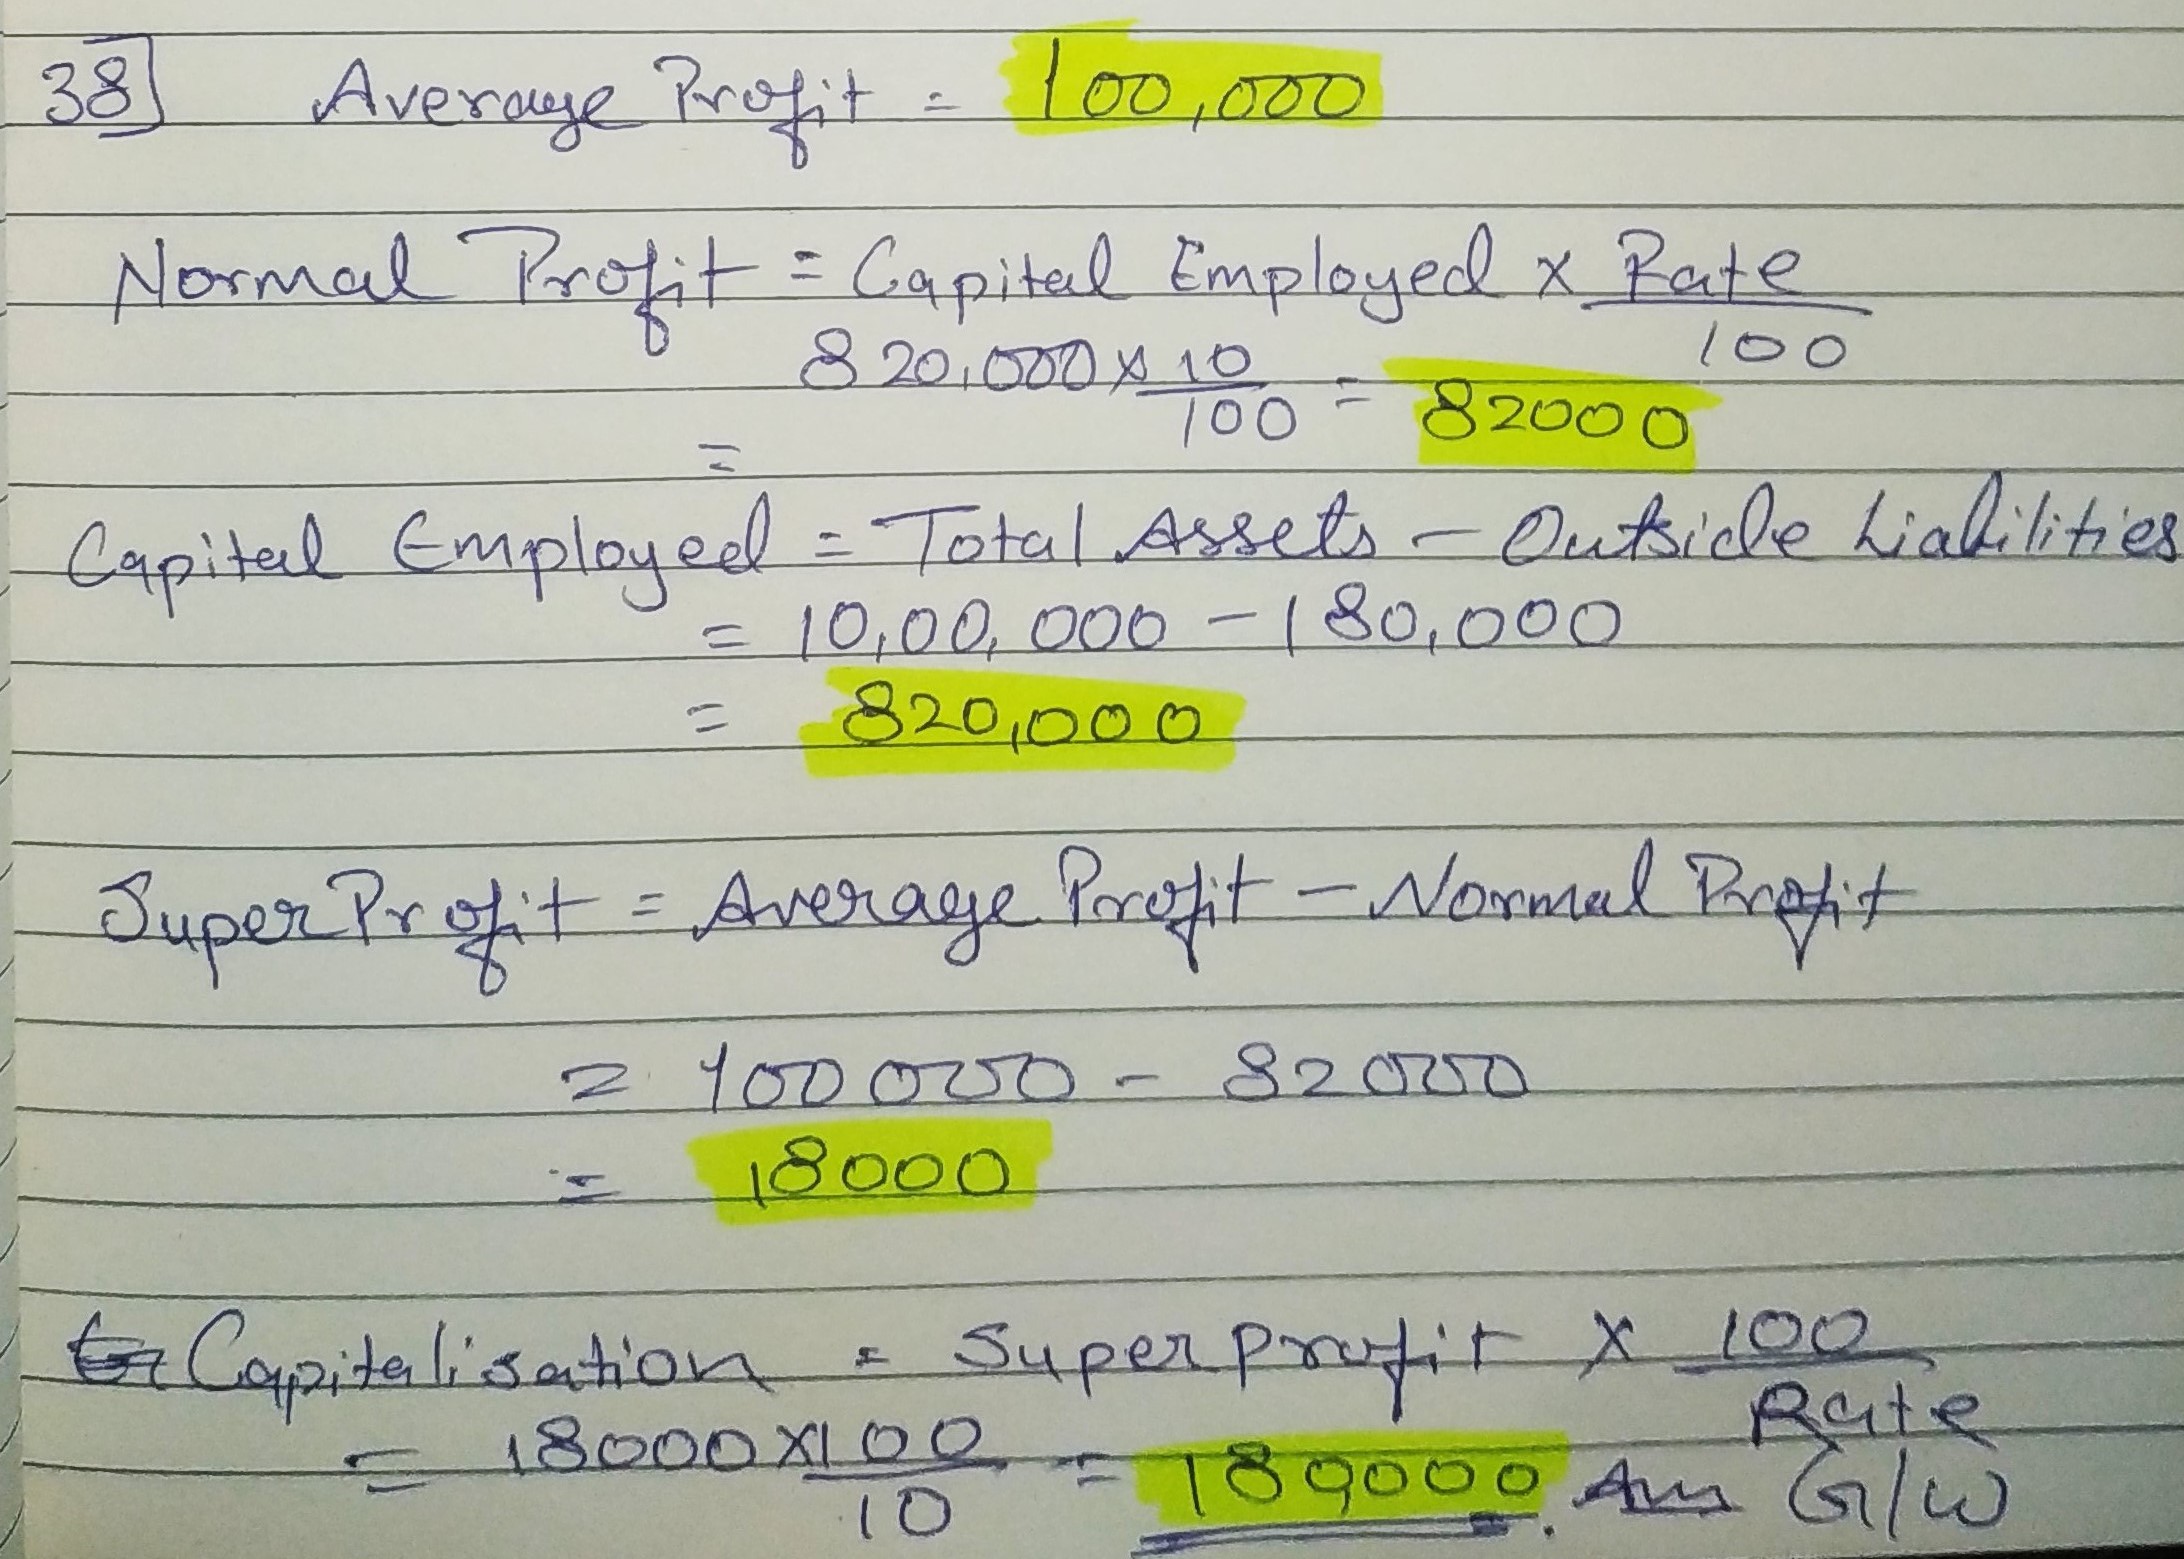 38] Average Profit = 100,000
Normal Profit = Capital Employed x Rate
100
820,000 x 10
100 = 82000
=
Capital Employed = Total Assets - Outside Liabilities
= 10,00,000 - 180,000
= 820,000
Super Profit = Average Profit - Normal Profit
= 100000 - 82000
= 18000
Capitalisation = Super profit X 100
Rate
= 18000 x 100
10 = 180000. Ans G/W